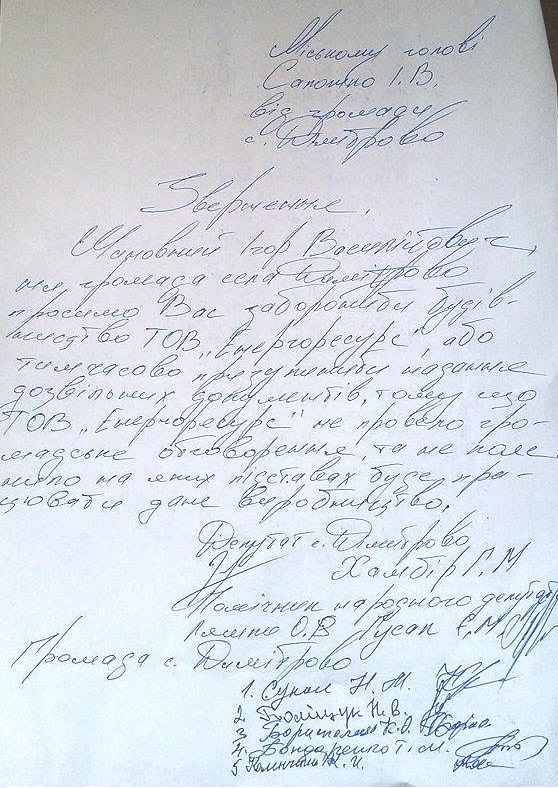 Міському голові
Сапожко І.В.
від громади
с. Димітрово
Звернення.
Шановний Ігор Васильйович,
ми громада села Димітрово
просимо Вас заборонити будів-
ництво ТОВ „Енергоресурс", або
тимчасово призупинити надання
дозвільних документів, тому що
ТОВ „Енергоресурс" не провело гро-
мадське обговорення, та не пояс
нило на яких підставах буде пра-
цювати дане виробництво.
Депутат с. Димітрово
Хамбір Г.М
Помічник народного депутата
Ляшко О.В Гусак Є.М.
Громада с. Димітрово
1. Н. М.
2 Поліщук Н.В.
3 К.О.
4. Бондаренко Т.М.
5 К.И.